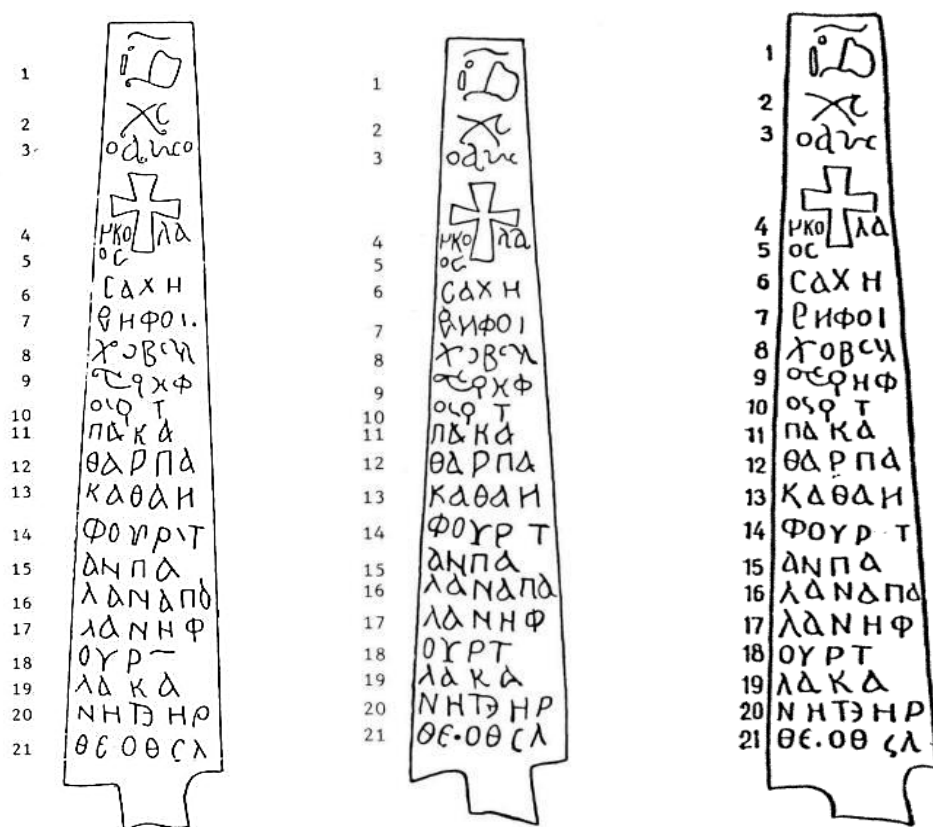 1
2 Χς
3
4 ΝΚΟ ΛΑ
5 ΟС
6 САΧΗ
7 ΡΗΦΟΙ.
8 ΧΟΒС
9 ΗΦ
10 ΟС Τ
11 ΠΑΚΑ
12 ΘΑΡΠΑ
13 ΚΑΘΑΗ
14 ΦΟΥΡΙΤ
15 ΑΝΠΑ
16 ΛΑΝΑΠΑ
17 ΛΑΝΗΦ
18 ΟΥΡ
19 ΛΑΚΑ
20 ΝΗΤЭΗΡ
21 ΘЄΟΘςΛ
1
2 Χς
3
4 ΝΚΟ ΛΑ
5 ΟС
6 САΧΗ
7 ΡΗΦΟΙ
8 ΧΟΒС
9 ΗΦ
10 ΟС Τ
11 ΠΑΚΑ
12 ΘΑΡΠΑ
13 ΚΑΘΑΗ
14 ΦΟΥΡΤ
15 ΑΝΠΑ
16 ΛΑΝΑΠΑ
17 ΛΑΝΗΦ
18 ΟΥΡΤ
19 ΛΑΚΑ
20 ΝΗΤЭΗΡ
21 ΘЄ·ΟΘςΛ
1
2 Χς
3
4 ΝΚΟ ΛΑ
5 ΟС
6 САΧΗ
7 ΡΗΦΟΙ
8 ΧΟΒС
9 ΗΦ
10 ΟС Τ
11 ΠΑΚΑ
12 ΘΑΡΠΑ
13 ΚΑΘΑΗ
14 ΦΟΥΡΤ
15 ΑΝΠΑ
16 ΛΑΝΑΠΑ
17 ΛΑΝΗΦ
18 ΟΥΡΤ
19 ΛΑΚΑ
20 ΝΗΤЭΗΡ
21 ΘЄ·ΟΘςΛ